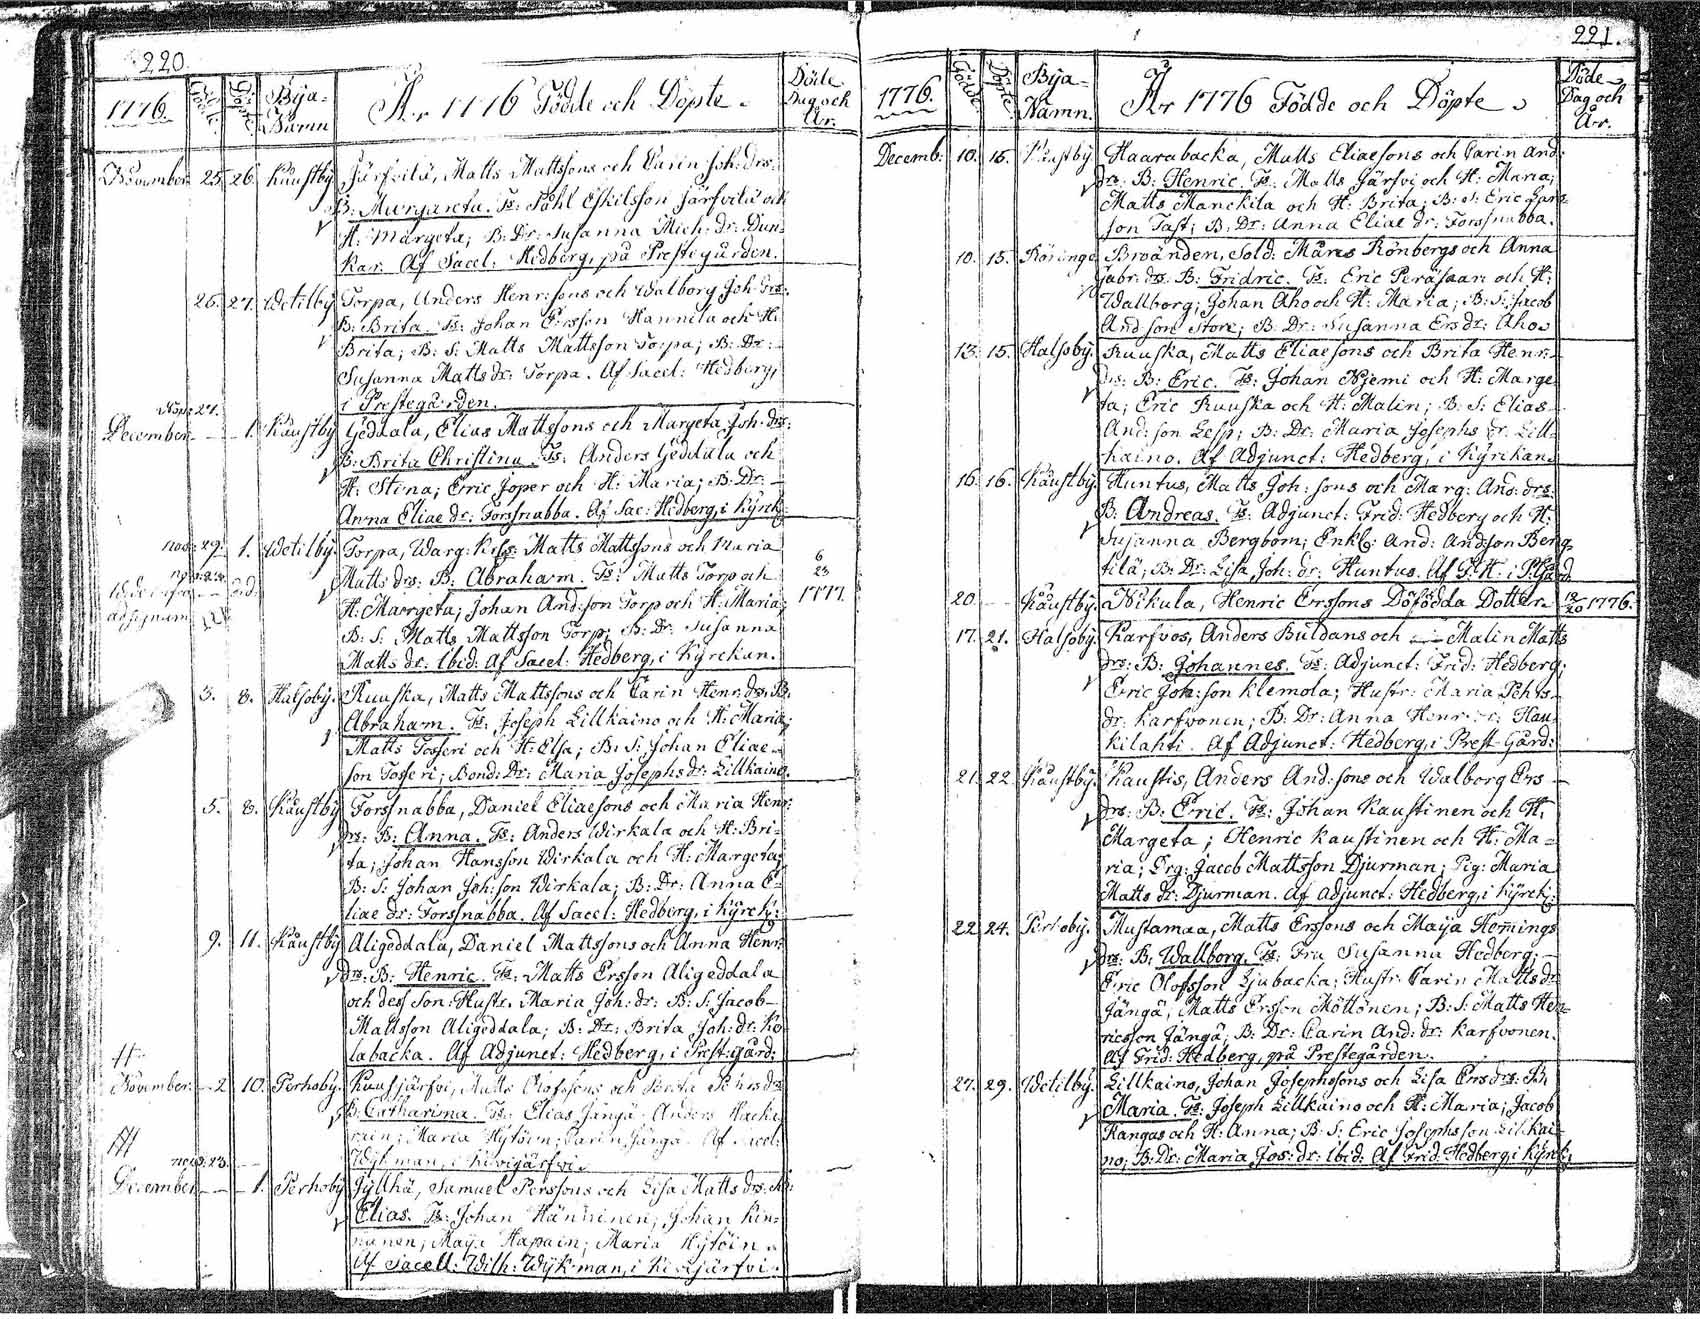 220.
1776.
Födde
Döpte
Bÿa-
Namn
År 1776 Födde och Döpte.
Döde
Dag och
År.
November. 25. 26. Käustbÿ
Järfvilä, Matts Mattssons och Carin Joh: drs:
B: Margareta. Ts: Påhl Eskilsson Järfvilä och
H: Margeta; B: Dr: Susanna Mich: dr: Dun-
kar. Af Sacel: Hedberg, på Prestegården.
26. 27. Wetilbÿ
Torpa, Anders Henr: sons och Walborg Joh: drs:
B: Brita. Ts: Johan Ersson Hannila och H:
Brita; B: S: Matts Mattsson Torpa; B: Dr:
Susanna Matts dr: Torpa. Af Sacel: Hedberg,
i Prestegården.
Nov: 27.
December. - - 1. Käustbÿ
Geddala, Elias Mattssons och Margeta Joh: drs:
B: Brita Christina. Ts: Anders Geddala och
H: Stina; Erric Joper och H: Maria; B: Dr: -
Anna Eliae dr: Forssnabba. Af Sac: Hedberg, i Kÿrck:
nov: 29. 1. Wetilbÿ
Torpa, Warg: Matts Mattssons och Maria
Matts drs: B: Abraham. Ts: Matts Torp och
H: Margeta; Johan And: son Torp och H: Maria;
B: S: Matts Mattsson Torp; B: Dr: Susanna
Matts dr: Ibid: Af Sacel: Hedberg, i Kÿrckan.
6
23
1777.
3. 8. Halsobÿ.
Ruuska, Matts Mattssons och Carin Henr: drs: B:
Abraham. Ts: Joseph Lillkaino och H: Maria;
Matts Tosseri och H: Elsa; B: S: Johan Eliae-
son Tosseri; Bond: Dr: Maria Josephs dr: Lillkaino.
5. 8. Käustbÿ
Forssnabba, Daniel Eliaesons och Maria Henr:
drs: B: Anna. Ts: Anders Wirkala och H: Bri-
ta; Johan Hansson Wirkala och H: Margeta;
B: S: Johan Joh: son Wirkala; B: Dr: Anna E-
liae dr: Forssnabba. Af Sacel: Hedberg, i Kÿrck:
9. 11. Käustbÿ
Aligeddala, Daniel Mattssons och Anna Henr:
drs: B: Henric. Ts: Matts Ersson Aligeddala
och dess son: Hustr: Maria Joh: dr: B: S: Jacob-
Mattsson Aligeddala; B: Dr: Brita Joh: dr: Ko
labacka. Af Adjunct: Hedberg, i Prest: gård:
November. - 2. 10. Perhobÿ.
Matts Olofssons och Brita Pehrs drs
B: Catharina. Ts: Elias Jängä; Anders Hacka
rain; Maria Hÿtöin; Carin Jänga. Af Sacel:
Wÿkman, i Kivijärfvi.
nov: 23.
December. - - 1. Perhobÿ
Jÿlhä, Samuel Perssons och Lisa Matts drs: B:
Elias. Ts: Johan Hänninen; Johan Kin-
nunen; Maÿa Hapain; Maria Hÿtöin.
Af Sacell: Wilh: Wÿkman, i Kivijärfvi.
221.
1776.
Födde
Döpte
Bÿa-
Namn.
År 1776 Födde och Döpte.
Döde
Dag och
År.
Decemb: 10. 15. Käustbÿ
Haarabacka, Matts Eliaesons och Carin And:
drs: B: Henric. Ts: Matts Järfvi och H: Maria;
Matts Manckila och H: Brita; B: S: Eric Lars-
son Tast; B: Dr: Anna Eliae dr: Forssnabba.
10. 15. Röringe
Broänden, Sold: Måns Rönbergs och Anna
Gabr: drs: B: Fridric. Ts: Eric Peräsaari och H:
Wallborg; Johan Aho och H: Maria; B: S: Jacob
And: son Store; B: Dr: Susanna Ers dr: Aho.
13. 15. Halsobÿ.
Ruuska, Matts Eliaesons och Brita Henr:
drs: B: Eric. Ts: Johan Njemi och H: Marge-
ta; Eric Ruuska och H: Malin; B: S: Elias
And: son Lesp; B: Dr: Maria Josephs dr: Lill-
kaino. Af Adjunct: Hedberg, i Kÿrckan.
16. 16. Käustbÿ.
Huntus, Matts Joh: sons och Marg: And: drs:
B: Andreas. Ts: Adjunct: Frid: Hedberg och H:
Susanna Bergbom; Enkl: And: And:son Berg-
tilä; B: Dr: Lisa Joh: dr: Huntus. Af F: H: i P:gård.
20. - - Käustbÿ.
Nikula, Henric Erssons Döfödda Dotter.
12/20 1776.
17. 21. Halsobÿ.
Karfvos, Anders Buldans och Malin Matts
drs: B: Johannes. Ts: Adjunct: Frid: Hedberg;
Eric Joh: son Klemola; Hustr: Maria Pehrs-
dr: Karfvonen; B: Dr: Anna Henr: dr: Hau-
kilahti. Af Adjunct: Hedberg, i Prest-Gård:
21. 22. Käustbÿ.
Kaustis, Anders And: sons och Walborg Ers -
drs: B: Eric. Ts: Johan Kaustinen och H:
Margeta; Henric Kaustinen och H: Ma-
ria; Drg: Jacob Mattsson Djurman; Pig: Maria
Matts dr: Djurman. Af Adjunct: Hedberg, i Kÿrck:
22. 24. Perhobÿ.
Mustamaa, Matts Erssons och Maÿa Hemings
drs: B: Wallborg. Ts: Fru Susanna Hedberg; -
Eric Olofsson Ljubacka; Hustr: Carin Matts dr
Jängä; Matts Ersson Möttönen; B: S: Matts Hen-
ricsson Jängä; B: Dr: Carin And: dr: Karfvonen.
Af Frid: Hedberg, på Prestegården.
27. 29. Wetilbÿ.
Lillkaino, Johan Josephssons och Lisa Ers drs: B:
Maria. Ts: Joseph Lillkaino och H: Maria; Jacob
Kangas och H: Anna; B: S: Eric Josephsson Lillkai-
no; B: Dr: Maria Jos: dr: Ibid: Af Frid: Hedberg, i Kÿrck: